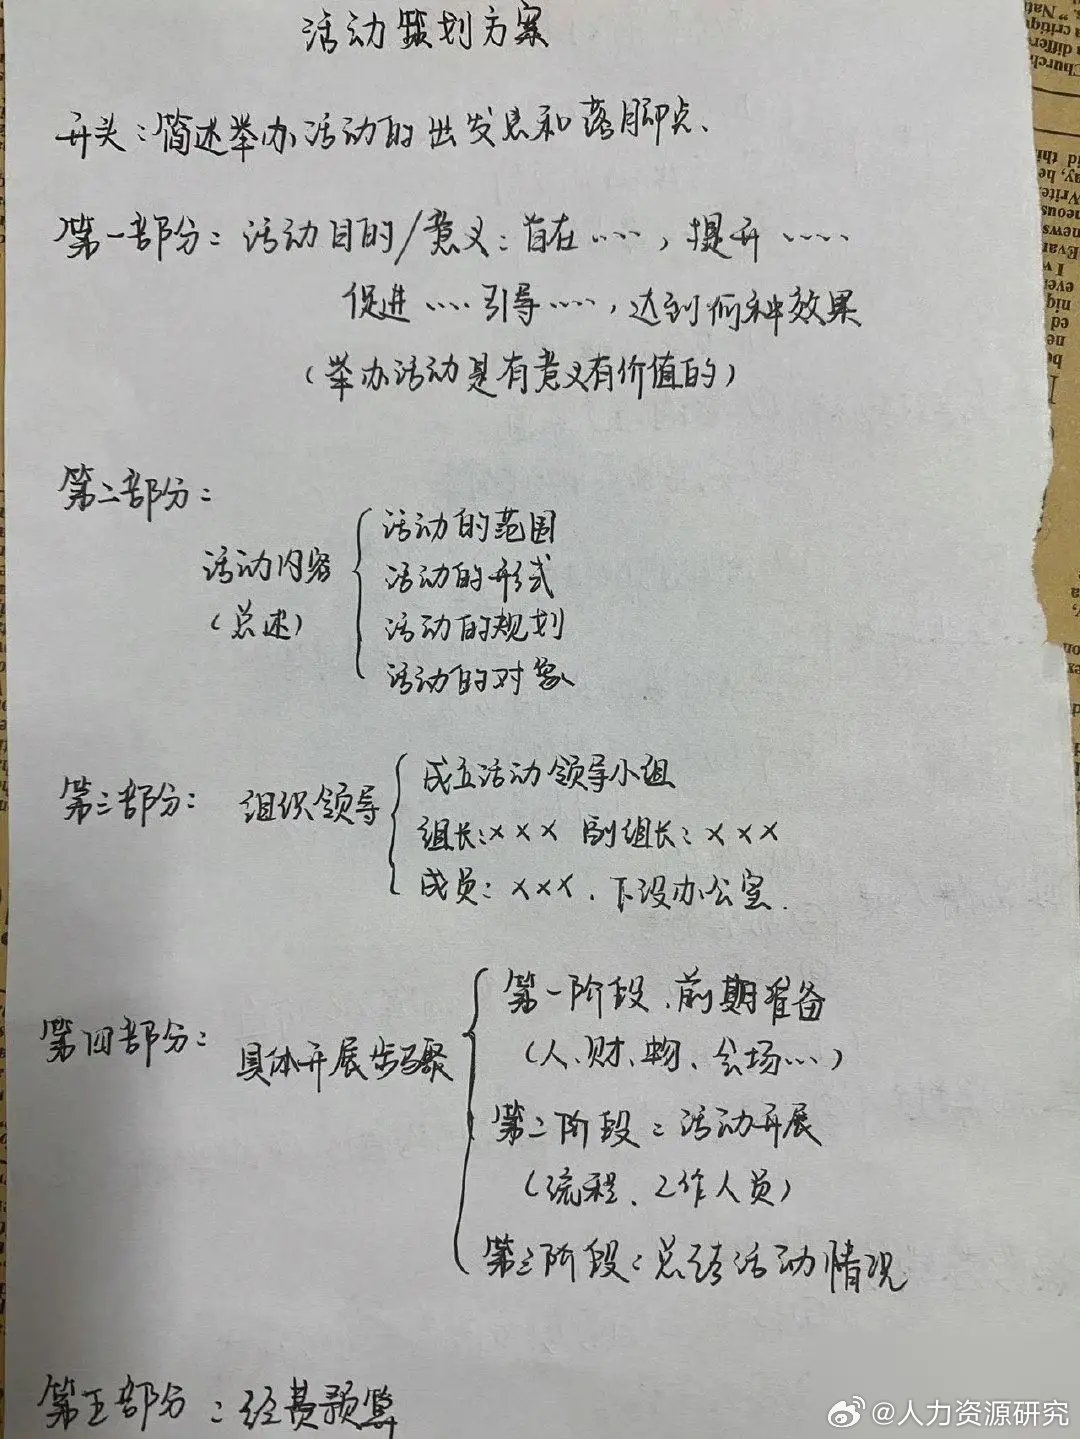 活动策划方案
开头：简述举办活动的出发点和落脚点、
第一部分：活动目的/意义：旨在……，提升……
促进……引导……，达到何种效果
（举办活动是有意义有价值的）
第二部分：
活动内容
（总述）
活动的范围
活动的形式
活动的规划
活动的对象
第三部分：组织领导
成立活动领导小组
组长：××× 副组长：×××
成员：×××．下设办公室．
第四部分：具体开展步骤
第一阶段、前期准备
（人、财、物、会场…）
第二阶段：活动开展
（流程、工作人员）
第三阶段：总结活动情况
第五部分：经费预算
@人力资源研究